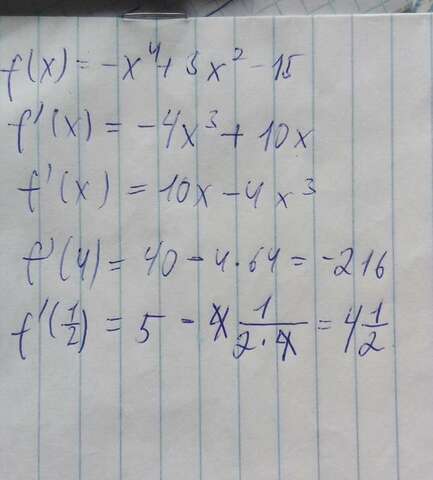 f(x) = -x⁴ + 5x² - 15
f'(x) = -4x³ + 10x
f'(x) = 10x - 4x³
f'(4) = 40 - 4·64 = -216
f'(1/2) = 5 - 4 1/(2·4) = 4 1/2